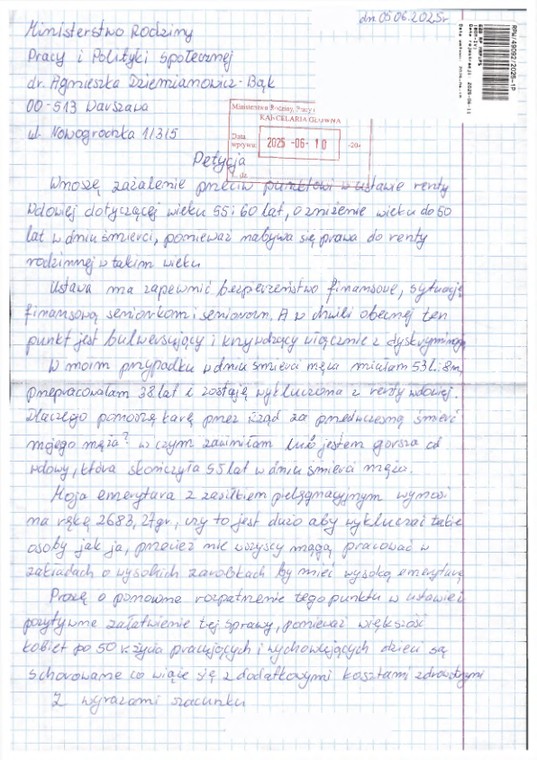 dn. 05.06.2025r
Ministerstwo Rodziny
Pracy i Polityki społecznej
dr. Agnieszka Dziemianowicz-Bąk
00-513 Warszawa
ul. Nowogrodzka 1/3/5
RPW/49092/2025-1P
Ministerstwo Rodziny, Pracy i
KANCELARIA GŁÓWNA
Data
wpływu
2025 -06- 10
Petycja
Wnoszę zażalenie przeciw punktowi w ustawie renty
wdowiej dotyczącej wieku 55 i 60 lat, o zniżenie wieku do 50
lat w dniu śmierci, ponieważ nabywa się prawa do renty
rodzinnej w takim wieku
Ustawa ma zapewnić bezpieczeństwo finansowe, sytuację
finansową seniorkom i seniorom. A w chwili obecnej ten
punkt jest bulwersujący i krzywdzący włącznie z dyskryminacją
W moim przypadku w dniu śmierci męża miałam 53 l. i 8m,
przepracowałam 38 lat i zostaję wykluczona z renty wdowiej.
Dlaczego ponoszę karę przez rząd za przedwczesną śmierć
mojego męża? w czym zawiniłam lub jestem gorsza od
wdowy, która skończyła 55 lat w dniu śmierci męża.
Moja emerytura z zasiłkiem pielęgnacyjnym wynosi
na rękę 2683,27gr, czy to jest dużo aby wykluczać takie
osoby jak ja, przecież nie wszyscy mogą pracować w
zakładach o wysokich zarobkach by mieć wysoką emeryturę
Proszę o ponowne rozpatrzenie tego punktu w ustawie i
pozytywne załatwienie tej sprawy, ponieważ większość
kobiet po 50 r. życia pracujących i wychowujących dzieci są
schorowane co wiąże się z dodatkowymi kosztami zdrowotnymi
Z wyrazami szacunku